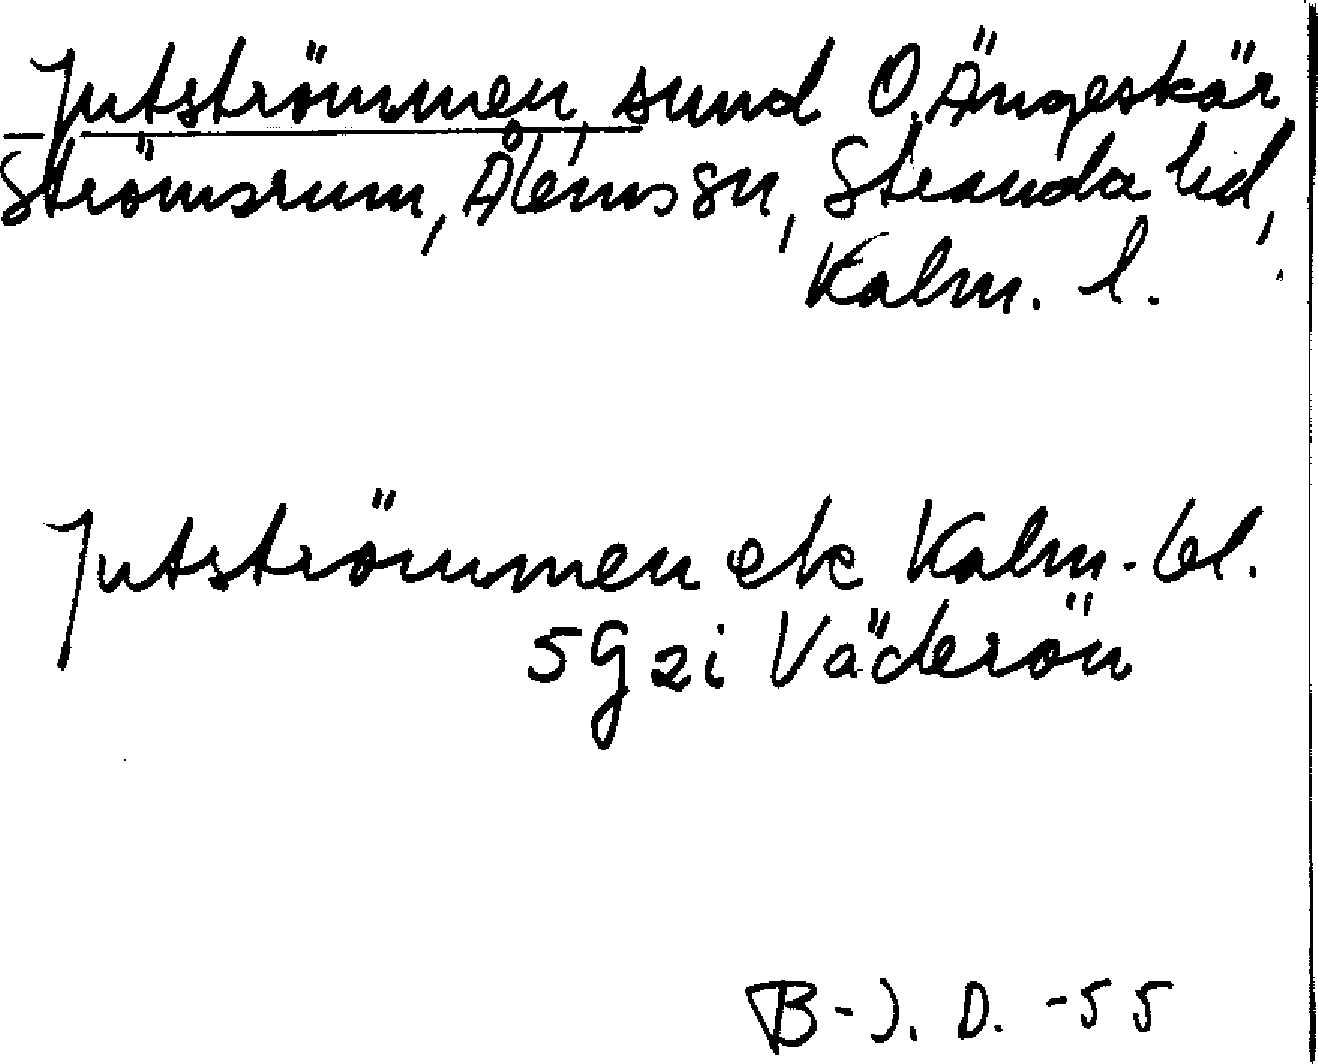 Jutströmmen, sund O. Ängeskär,
Strömsrum, Ålems sn, Stranda hd,
Kalm. l.
Jutströmmen ek Kalm. bl.
5 g 2 i Väderön
B-J. D. -55